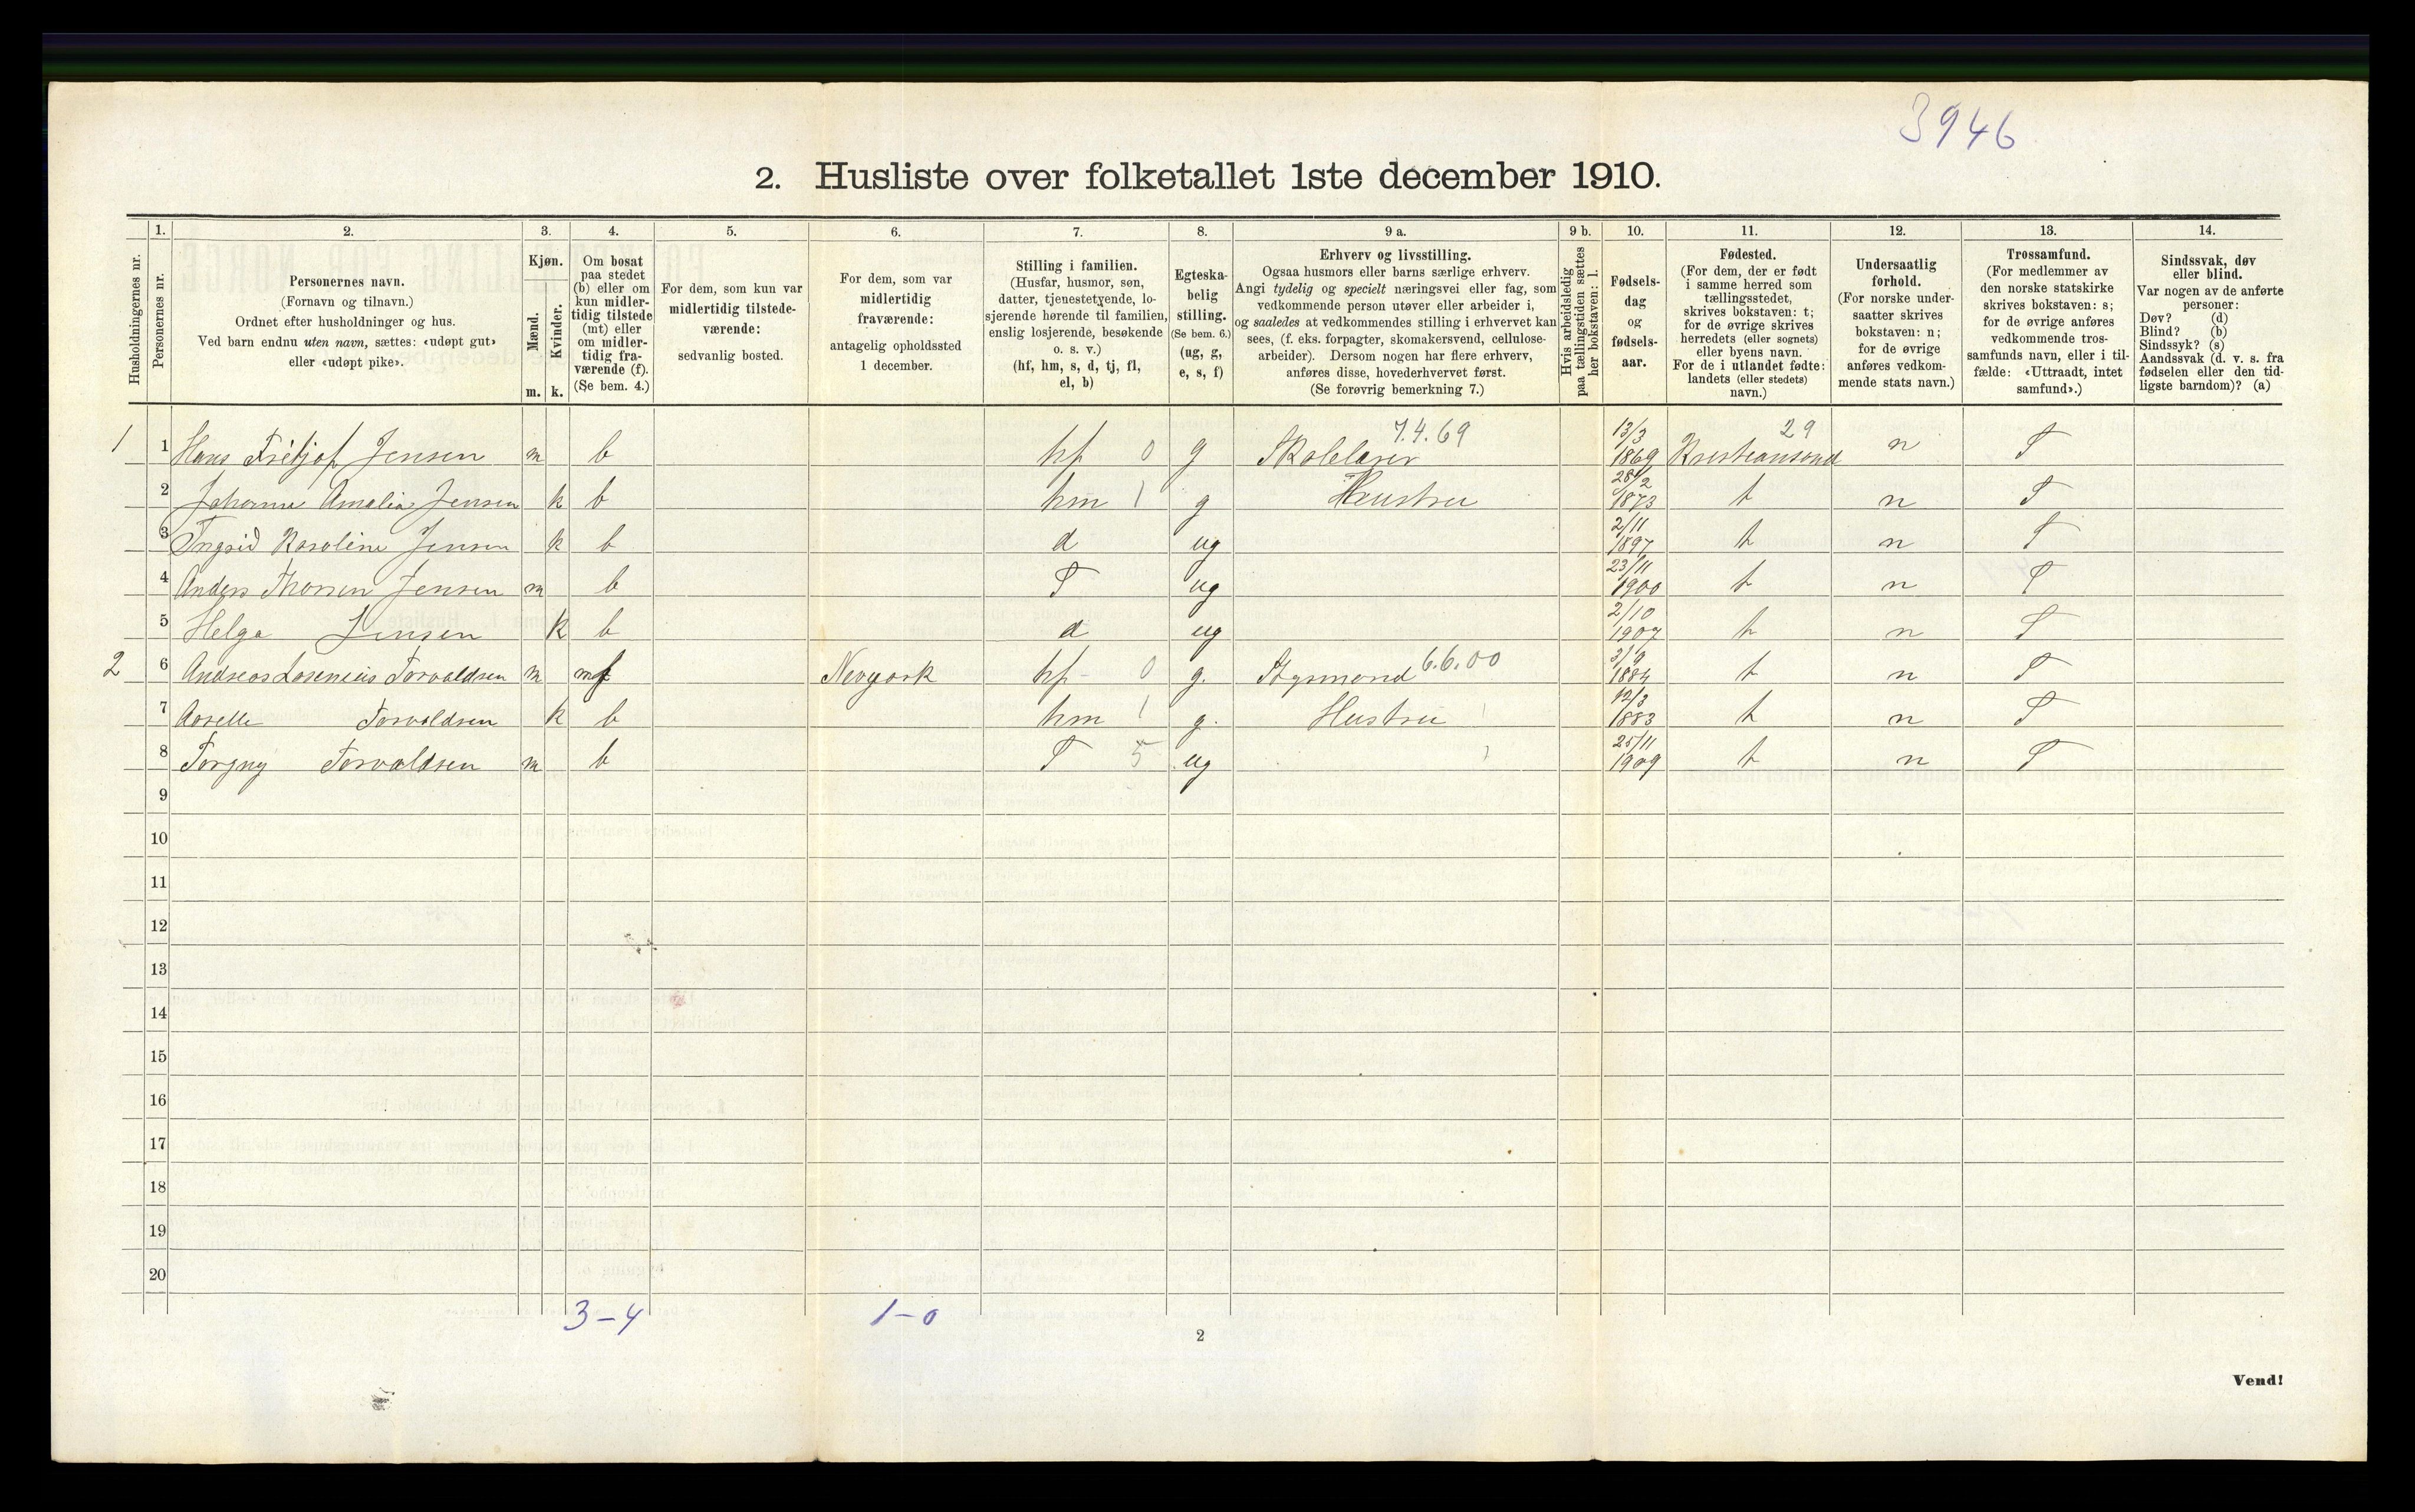 3946
2. Husliste over folketallet 1ste december 1910.
Husholdningernes nr.
1.
Personernes nr.
2.
Personernes navn.
(Fornavn og tilnavn.)
Ordnet efter husholdninger og hus.
Ved barn endnu uten navn, sættes: «udøpt gut»
eller «udøpt pike».
3.
Kjøn.
Mænd.
Kvinder.
m. k.
4.
Om bosat
paa stedet
(b) eller om
kun midler-
tidig tilstede
(mt) eller
om midler-
tidig fra-
værende (f).
(Se bem. 4.)
5.
For dem, som kun var
midlertidig tilstede-
værende:
sedvanlig bosted.
6.
For dem, som var
midlertidig
fraværende:
antagelig opholdssted
1 december.
7.
Stilling i familien.
(Husfar, husmor, søn,
datter, tjenestetyende, lo-
sjerende hørende til familien,
enslig losjerende, besøkende
o. s. v.)
(hf, hm, s, d, tj, fl,
el, b)
8.
Egteska-
belig
stilling.
(Se bem. 6.)
(ug, g,
e, s, f)
9 a.
Erhverv og livsstilling.
Ogsaa husmors eller barns særlige erhverv.
Angi tydelig og specielt næringsvei eller fag, som
vedkommende person utøver eller arbeider i,
og saaledes at vedkommendes stilling i erhvervet kan
sees, (f. eks. forpagter, skomakersvend, cellulose-
arbeider). Dersom nogen har flere erhverv,
anføres disse, hovederhvervet først.
(Se forøvrig bemerkning 7.)
9 b.
Hvis arbeidsledig
paa tællingstiden sættes
her bokstaven: l.
10.
Fødsels-
dag
og
fødsels-
aar.
11.
Fødested.
(For dem, der er født
i samme herred som
tællingsstedet,
skrives bokstaven: t;
for de øvrige skrives
herredets (eller sognets)
eller byens navn.
For de i utlandet fødte:
landets (eller stedets)
navn.)
12.
Undersaatlig
forhold.
(For norske under-
saatter skrives
bokstaven: n;
for de øvrige
anføres vedkom-
mende stats navn.)
13.
Trossamfund.
(For medlemmer av
den norske statskirke
skrives bokstaven: s;
for de øvrige anføres
vedkommende tros-
samfunds navn, eller i til-
fælde: «Uttraadt, intet
samfund».)
14.
Sindssvak, døv
eller blind.
Var nogen av de anførte
personer:
Døv? (d)
Blind? (b)
Sindssyk? (s)
Aandssvak (d. v. s. fra
fødselen eller den tid-
ligste barndom)? (a)
1 1 Hans Fritjof Jensen m b hf 0 g Skolelærer 7.4.69 13/3 1869 Kristiansund 29 n S
2 Johanna Amalia Jensen k b hm 1 g Hustru 28/2 1873 t n S
3 Ingrid Karoline Jensen k b d ug 2/11 1897 t n S
4 Anders Thorsen Jensen m b S ug 23/11 1900 t n S
5 Helga Jensen k b d ug 2/10 1907 t n S
2 6 Andreas Torvaldsen m f Newyork hf 0 g. Styrmand 6.6.00 3/9 1884 t n S
7 Torvaldsen k b hm 1 g. Hustru 12/3 1883 t n S
8 Torgny Torvaldsen m b S 5 ug 25/11 1909 t n S
9
10
11
12
13
14
15
16
17
18
19
20
3-4 1-0
2
Vend!